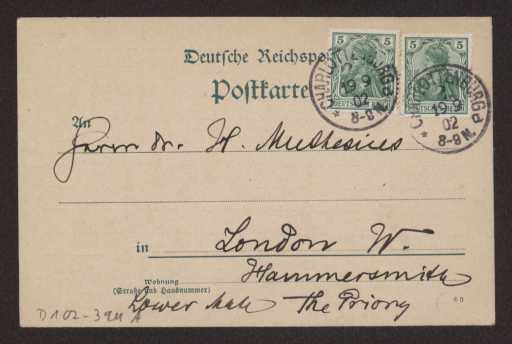 Deutsche Reichspost
Postkarte
5 5 5 5
CHARLOTTENBURG
19 9
02
8-9 N.
CHARLOTTENBURG
19 9
02
8-9 N.
An
Herrn Dr. H. Muthesius
in London W.
Hammersmith
Wohnung
(Straße und Hausnummer)
Lower Mall The Priory
D 102-